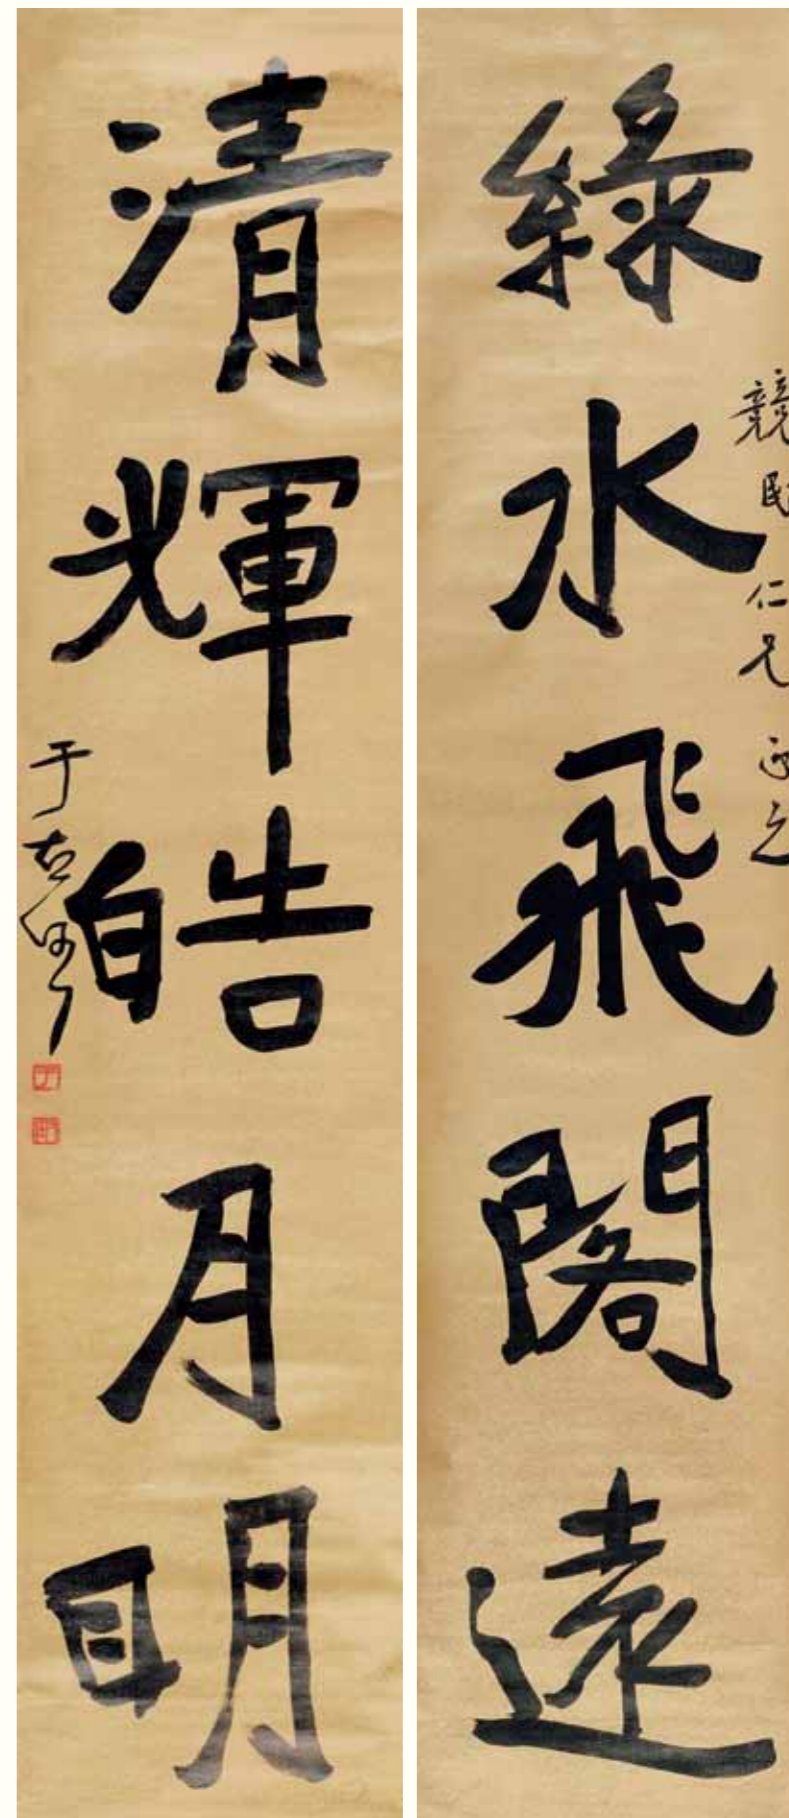 綠水飛閣遠
競民仁兄正之
清輝皓月明
于右任